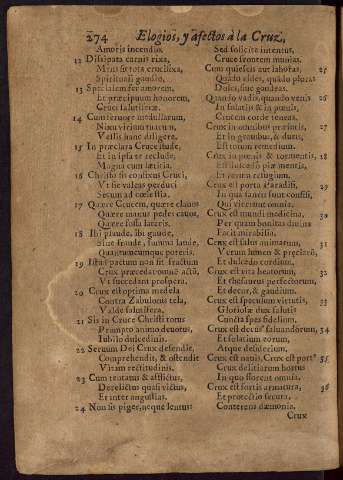 274 Elogios, y afectos à la Cruz,
Amoris incendio.
12 Dissipata carnis rixa,
Mens sit tota crucifixa,
Spirituali gaudio,
13 Specialem fer amorem,
Et præcipuum honorem,
Cruci salutiferæ.
14 Cum feruore medullarum,
Nixu virium tuarum,
Velis hanc diligere.
15 In præclara Cruce stude,
Et in ipsa te reclude,
Magna cum lætitia.
16 Christo sis confixus Cruci,
Vt sic valeas perduci
Secum ad cœlestia.
17 Quære Crucem, quære clauos
Quære manus pedes cauos,
Quære fossa lateris.
18 Ibi plaude, ibi gaude,
Sine fraude, summa laude,
Quantumcumque poteris.
19 Istud pactum non sit fractum
Crux præcedat omnē actū,
Vt succedant prospera.
20 Crux est optima medela
Contra Zabulonis tela,
Valde salutifera.
21 Sis in Cruce Christi totus
Prompto animo deuotus,
Iubilo dulcedinis.
22 Seruum Dei Crux defende,
Comprehendis, & ostende
Vitam rectitudinis.
23 Cum tentatus & afflictus,
Derelictus quasi victus,
Et inter angustias.
24 Non sis piger, neque lentus:
Sed solicite intentus,
Cruce frontem munias.
Cum quiescis aut laboras, 25
Quādo rides, quādo ploras
Doles, siue gaudeas.
Quando vadis, quando venis 26
In solatijs & in pœnis,
Crucem corde teneas,
Crux in omnibus pressuris, 27
Et in grauibus, & duris,
Est totum remedium.
Crux in pœnis & tormentis, 28
Est dulcedo piæ mentis,
Et verum refugium.
Crux est porta Paradisi, 29
In qua sancti sunt confisi,
Qui vicerunt omnia.
Crux est mundi medicina, 30
Per quam bonitas diuina
Facit mirabilia.
Crux est salus animarum, 31
Verum lumen & præclarū,
Et dulcedo cordium.
Crux est vita beatorum, 32
Et thesaurus perfectorum,
Et decor, & gaudium.
Crux est speculum virtutis, 33
Gloriosæ dux salutis
Cuncta spes fidelium.
Crux est decus saluandorum, 34
Et solatium eorum,
Atque desiderium.
Crux est nauis, Crux est port° 35
Crux delitiarum hortus
In quo florent omnia.
Crux est fortis armatura, 36
Et protectio secura,
Conterens dæmonia.
Crux